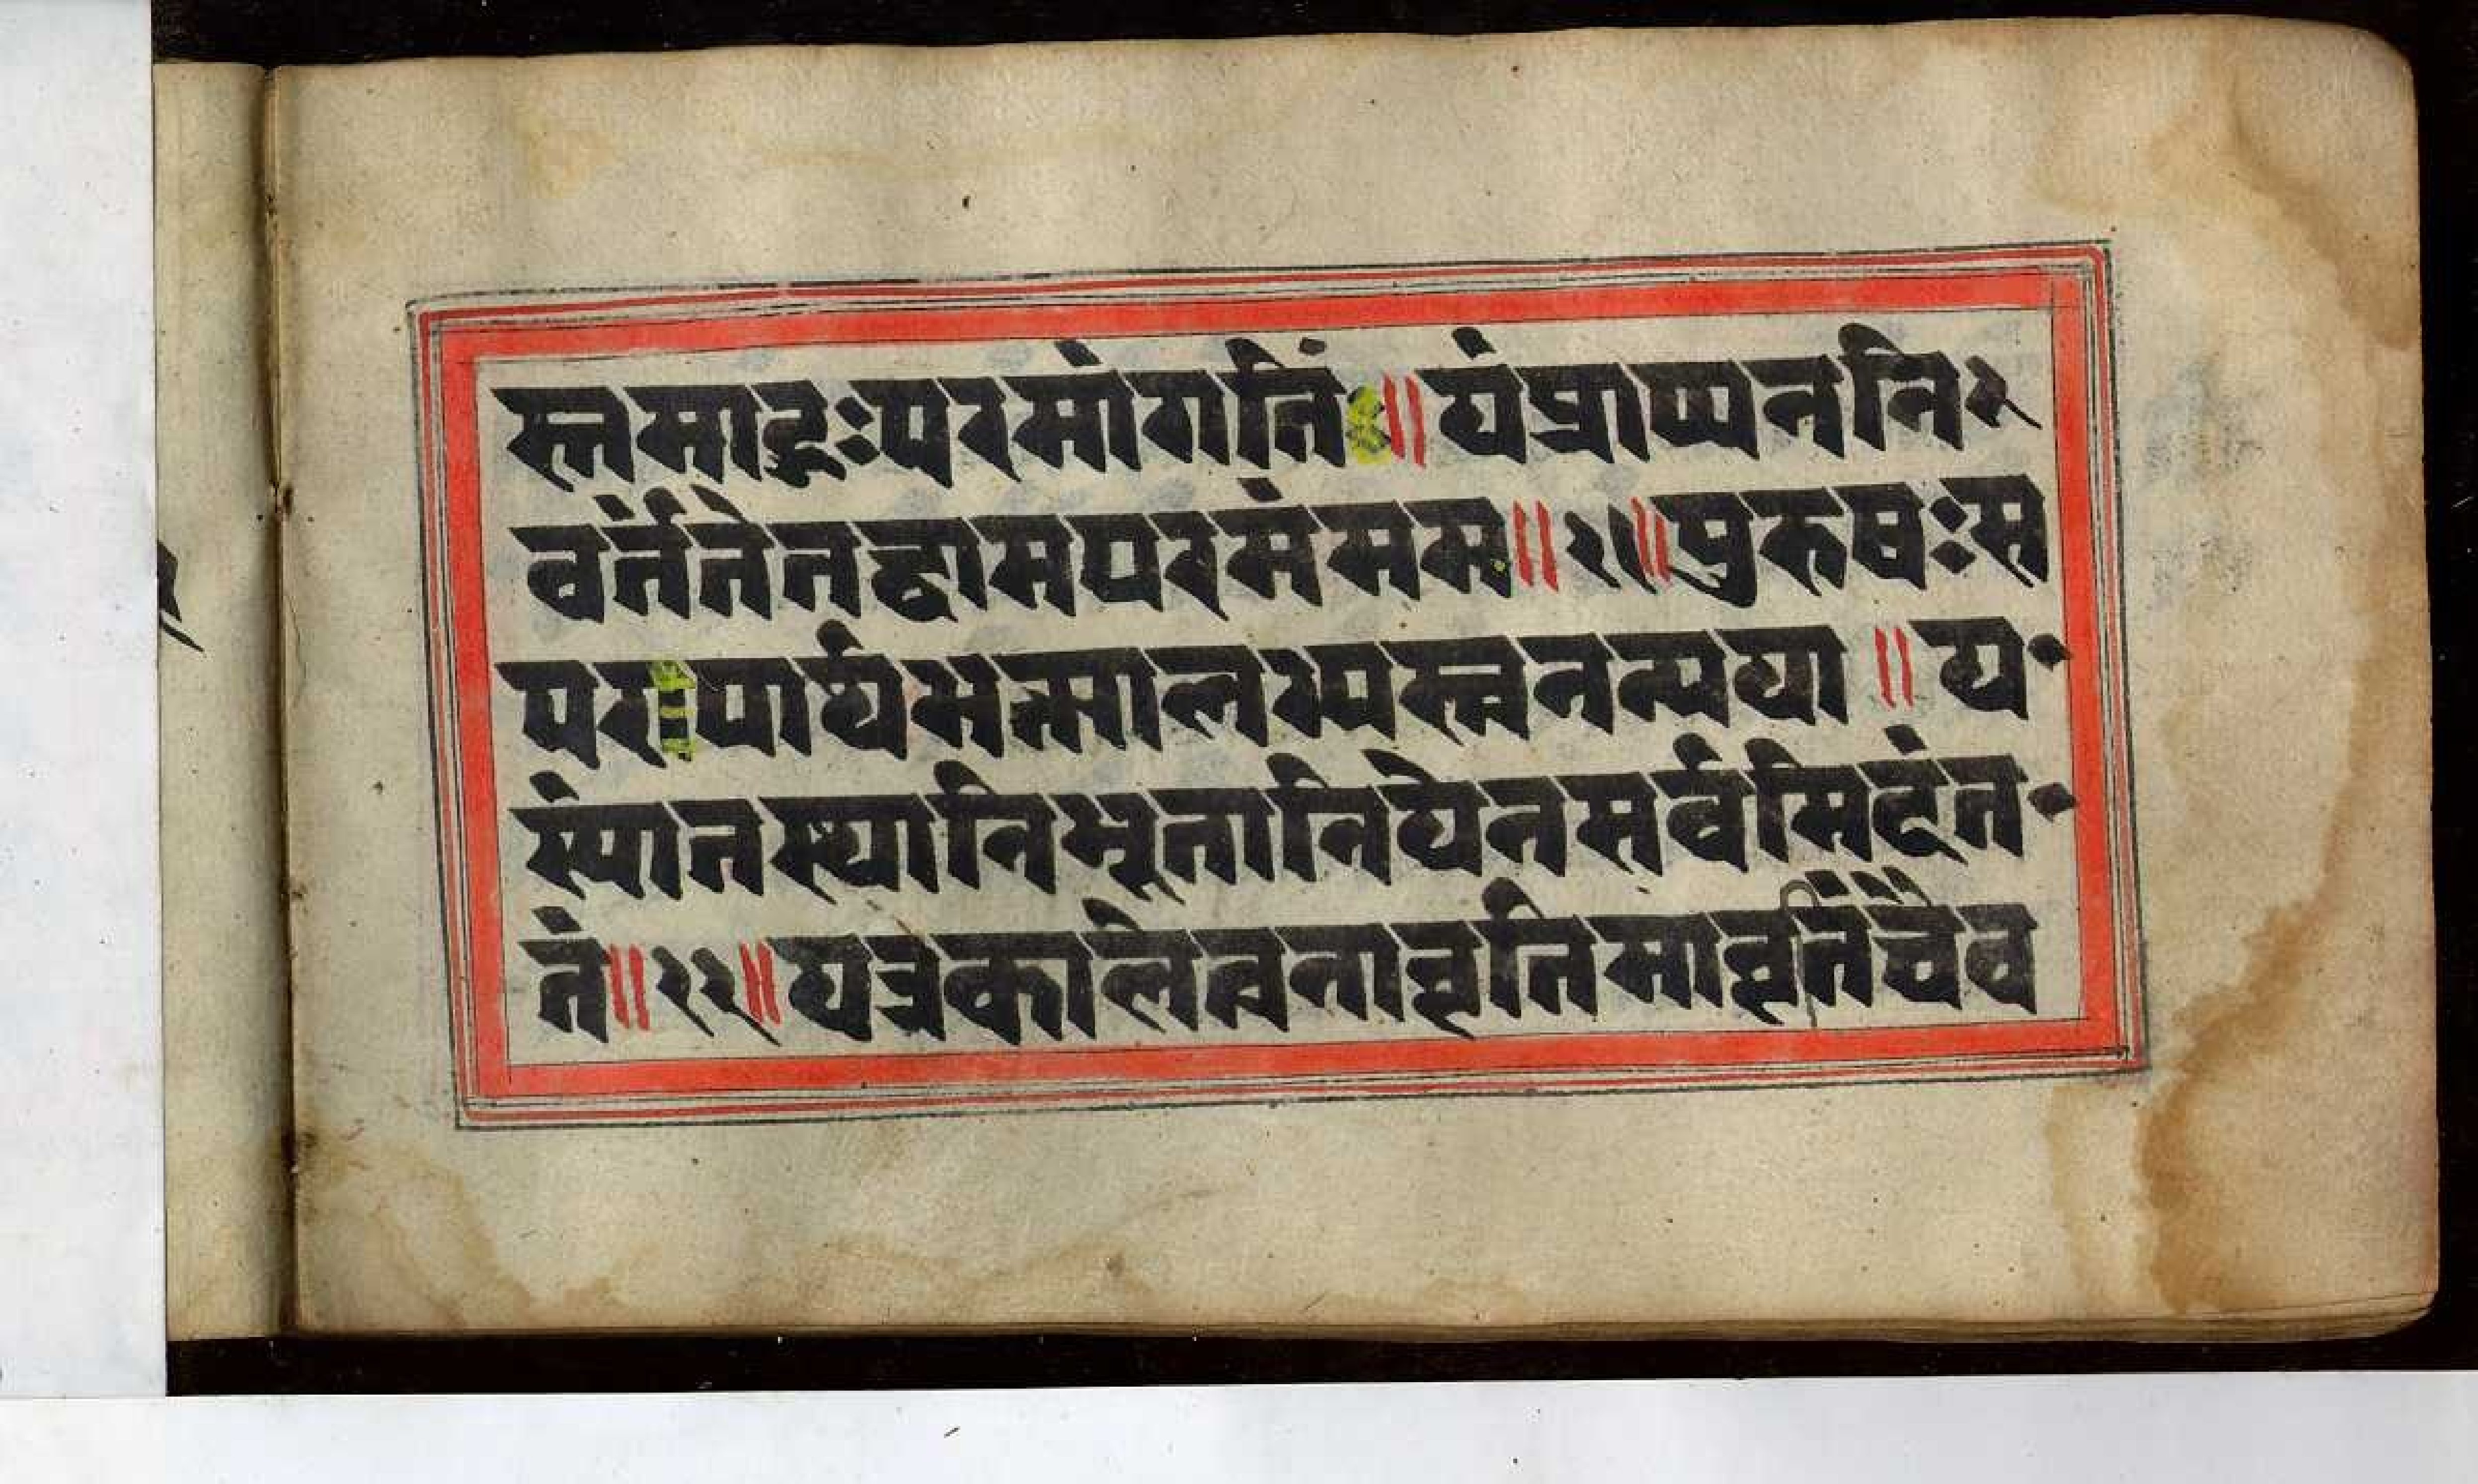 स्तमाहुःपरमांगतिं॥यंप्राप्यननि२
वर्तंतेतद्धामपरमंमम॥२१॥पुरुषःस
परःपार्थभक्त्यालभ्यस्त्वनन्यया॥य
स्यांतस्थानिभूतानियेनसर्वमिदंत
तं॥२२॥यत्रकालेत्वनावृत्तिमावृत्तिंचैव